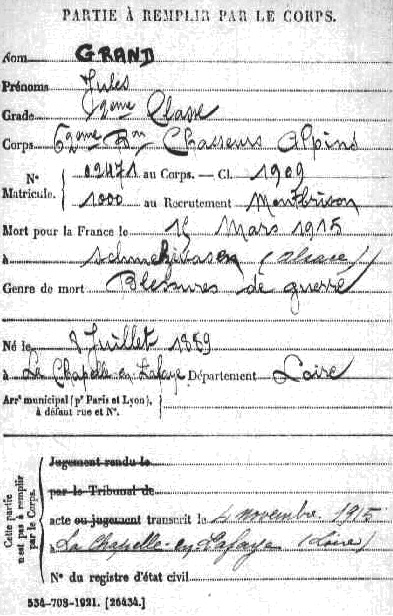 PARTIE À REMPLIR PAR LE CORPS.
Nom GRAND
Prénoms Jules
Grade 2ème Classe
Corps 62ème Bon Chasseurs Alpins
N° 02471 au Corps. — Cl. 1909
Matricule. 1000 au Recrutement Montbrison
Mort pour la France le 15 Mars 1915
à (Alsace)
Genre de mort Blessures de guerre
Né le 8 Juillet 1889
à La Chapelle en Lafaye Département Loire
Arrt municipal (pr Paris et Lyon),
à défaut rue et N°.
Cette partie
n'est pas à remplir
par le Corps.
Jugement rendu le
par le Tribunal de
acte ou jugement transcrit le 4 novembre 1915
à La Chapelle en Lafaye (Loire)
N° du registre d'état civil
534-708-1921. [26434.]